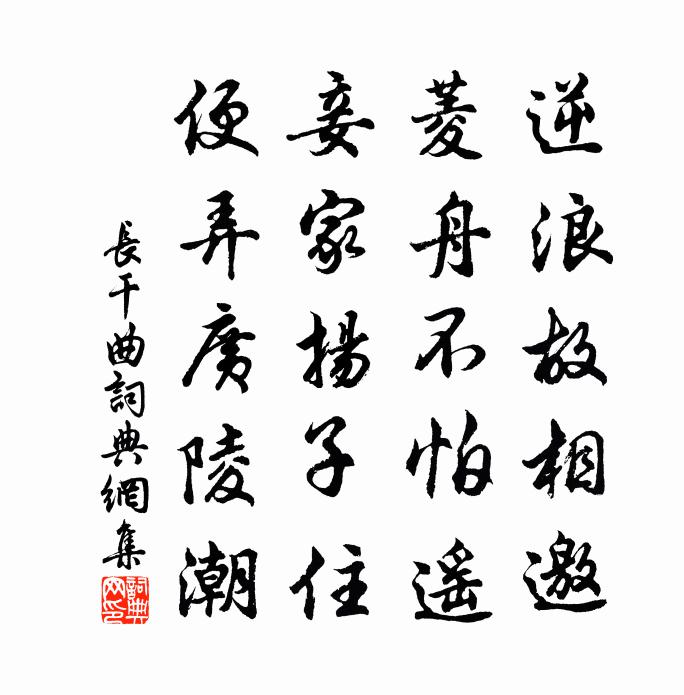 逆浪故相邀
菱舟不怕遥
妾家揚子住
便弄廣陵潮
長干曲詞典網集
詞典網印